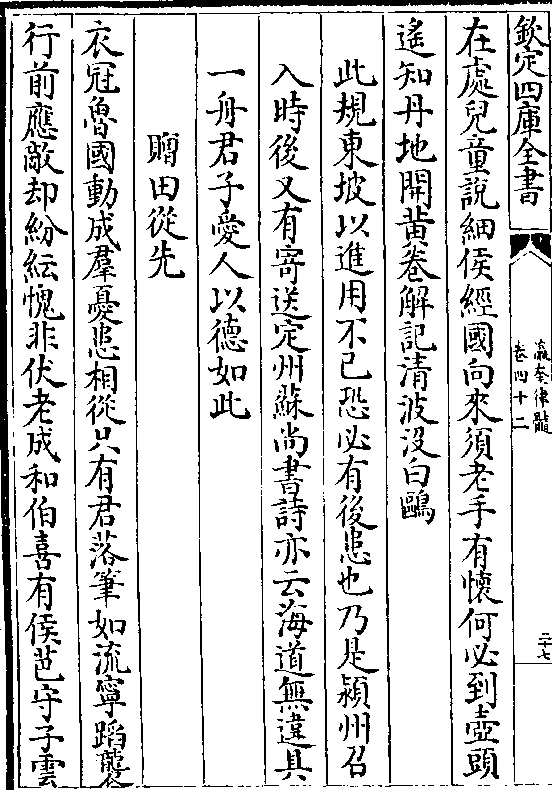 欽定四庫全書
瀛奎律髓
卷四十二
二十七
在處兒童說細侯經國向來須老手有懷何必到壺頭
遙知丹地開黃卷解記清波没白鷗
此規東坡以進用不已恐必有後患也乃是潁州召
入時後又有寄送定州蘇尚書詩亦云海道無違具
一舟君子愛人以德如此
贈田從先
衣冠魯國動成羣憂患相從只有君落筆如流寧蹈襲
行前應敵却紛紜愧非伏老成和伯喜有侯芭守子雲